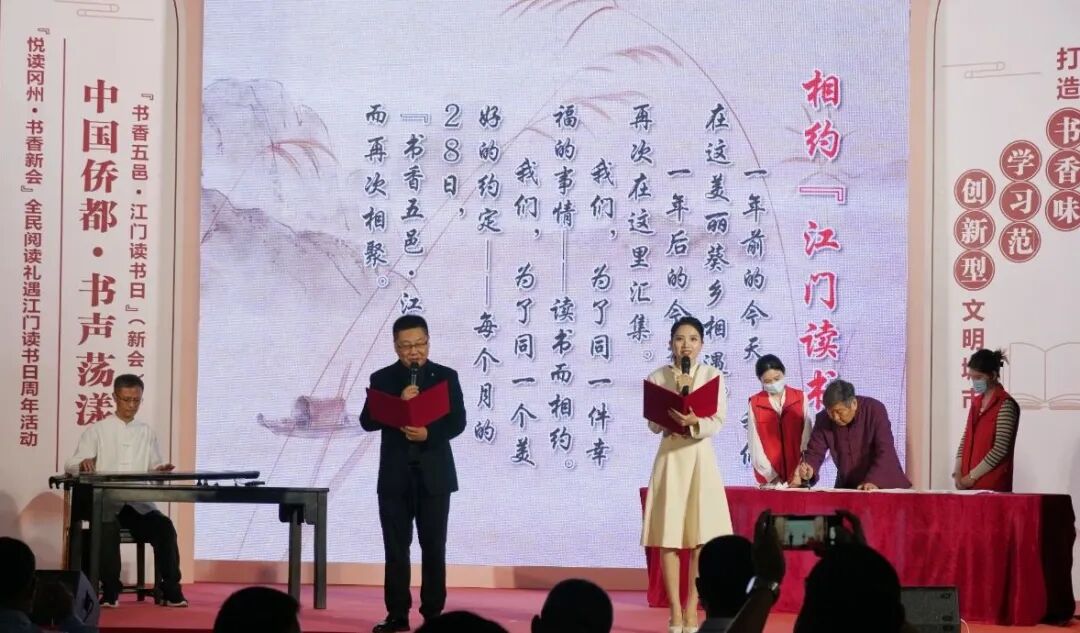 『书香五邑·江门读书日』（新会
中国侨都·书声荡漾
『悦读冈州·书香新会』全民阅读礼遇江门读书日周年活动
相约『江门读书
一年前的今天
在这美丽葵乡相遇
一年后的今
再次在这里汇集。
我们，为了同一件幸
福的事情——读书而相约。
我们，为了同一个美
好的约定——每个月的
28日，
『书香五邑·江
而再次相聚。
打造书香味
学习范
创新型文明城市